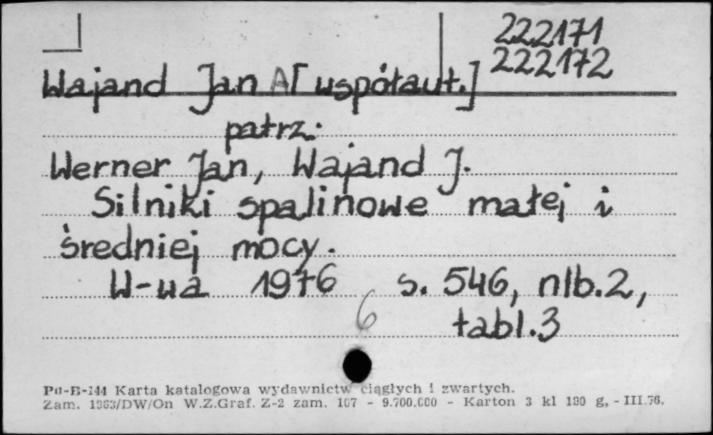 222171
222172
Wajand Jan A [współaut.]
patrz:
Werner Jan, Wajand J.
Silniki spalinowe małej i
średniej mocy.
W-wa 1976 s. 546, nlb.2,
6 tabl.3
Pu-B-144 Karta katalogowa wydawnictw ciągłych i zwartych.
Zam. 1363/DW/On W.Z.Graf. Z-2 zam. 107 - 9.700.000 - Karton 3 kl 190 g, - III.76.